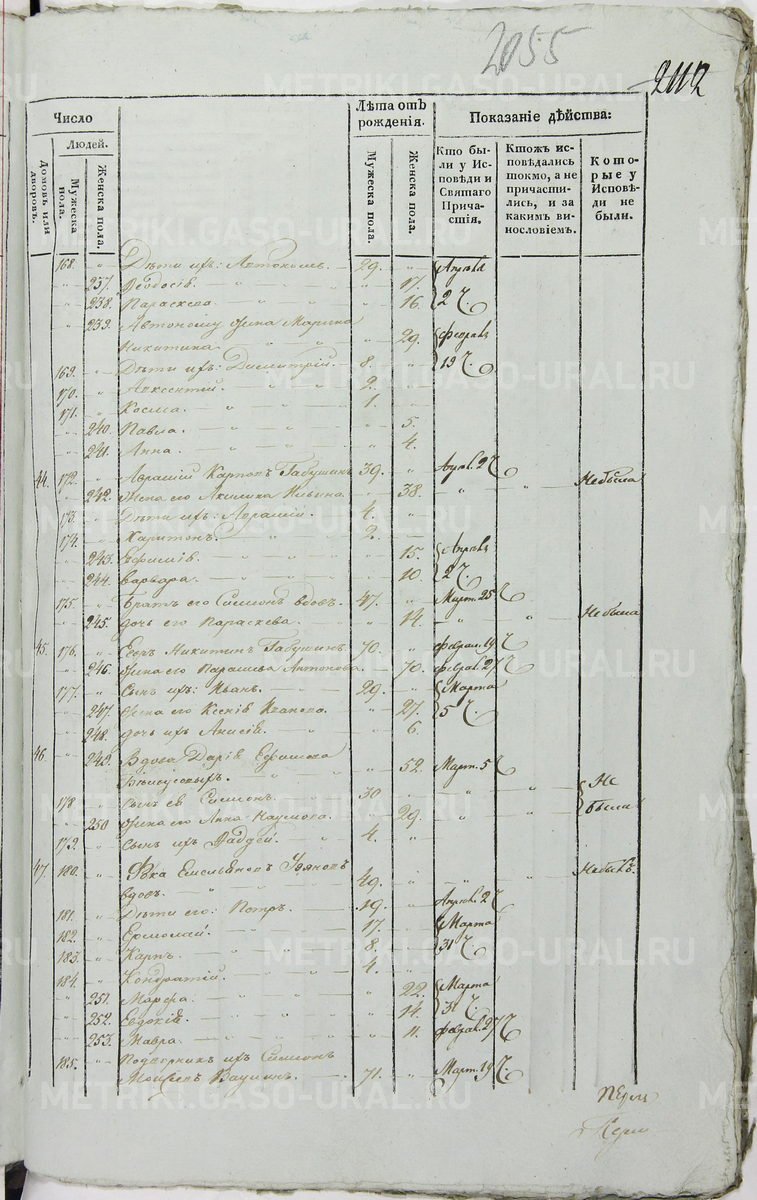 2055
2112
Число
Людей.
Домовъ или дворовъ.
Мужеска пола.
Женска пола.
Лѣта отъ рожденія.
Мужеска пола.
Женска пола.
Показаніе дѣйства:
Кто были у Исповѣди и Святаго Причастія.
Ктожъ исповѣдались токмо, а не причастились, и за какимъ винословіемъ.
Которые у Исповѣди не были.
168. Дѣти ихъ: Автономъ. 29. Апрѣля
237. Ѳеодосія. 17.
238. Параскева. 16. 2 ч.
239. Автоному жена Марина
Никитина. 29. Февраля
169. Дѣти ихъ: Димитрій. 8. 19 ч.
170. Авксентій. 2.
171. Косма. 1.
240. Павла. 5.
241. Анна. 4.
44. 172. Карповъ Бабушкинъ 39. Апрѣ. 2 ч.
242. Жена его Акилина Ильина. 38. Не была
173. Дѣти ихъ: 4.
174. Харитонъ. 2.
243. Ефимія. 15. Апрѣля
244. Варвара. 10. 2 ч.
175. Братъ его Симеонъ вдовъ. 47. Март. 25 ч.
245. дочь его Параскева. 14. Не была
45. 176. Никитинъ Бабушкинъ 70. Феврал. 19 ч.
246. Жена его Антонова 70. Феврал. 27 ч.
177. Сынъ ихъ: Иванъ. 29. Марта
247. Жена его Ксенія Иванова. 27. 5 ч.
248. дочь ихъ Анисія. 6.
46. 249. Вдова Дарія Ефимова
52. Март. 5 ч.
178. Сынъ ея Симеонъ. 30 Не
250. Жена его Анна Наумова. 29. были
179. Сынъ ихъ Фаддей. 4.
47. 180. Емельяновъ
вдовъ. 49. Не былъ.
181. Дѣти его: Петръ. 19. Апрѣл. 2 ч.
182. Ермолай. 17. Марта
183. Карпъ. 8. 31 ч.
184. Кондратій. 4.
251. Марѳа. 22. Марта
252. Евдокія. 14. 31 ч.
253. Мавра. 11. Феврал. 27 ч.
185. Подворникъ ихъ Симеонъ
71. Март. 19 ч.
METRIKI.GASO-URAL.RU